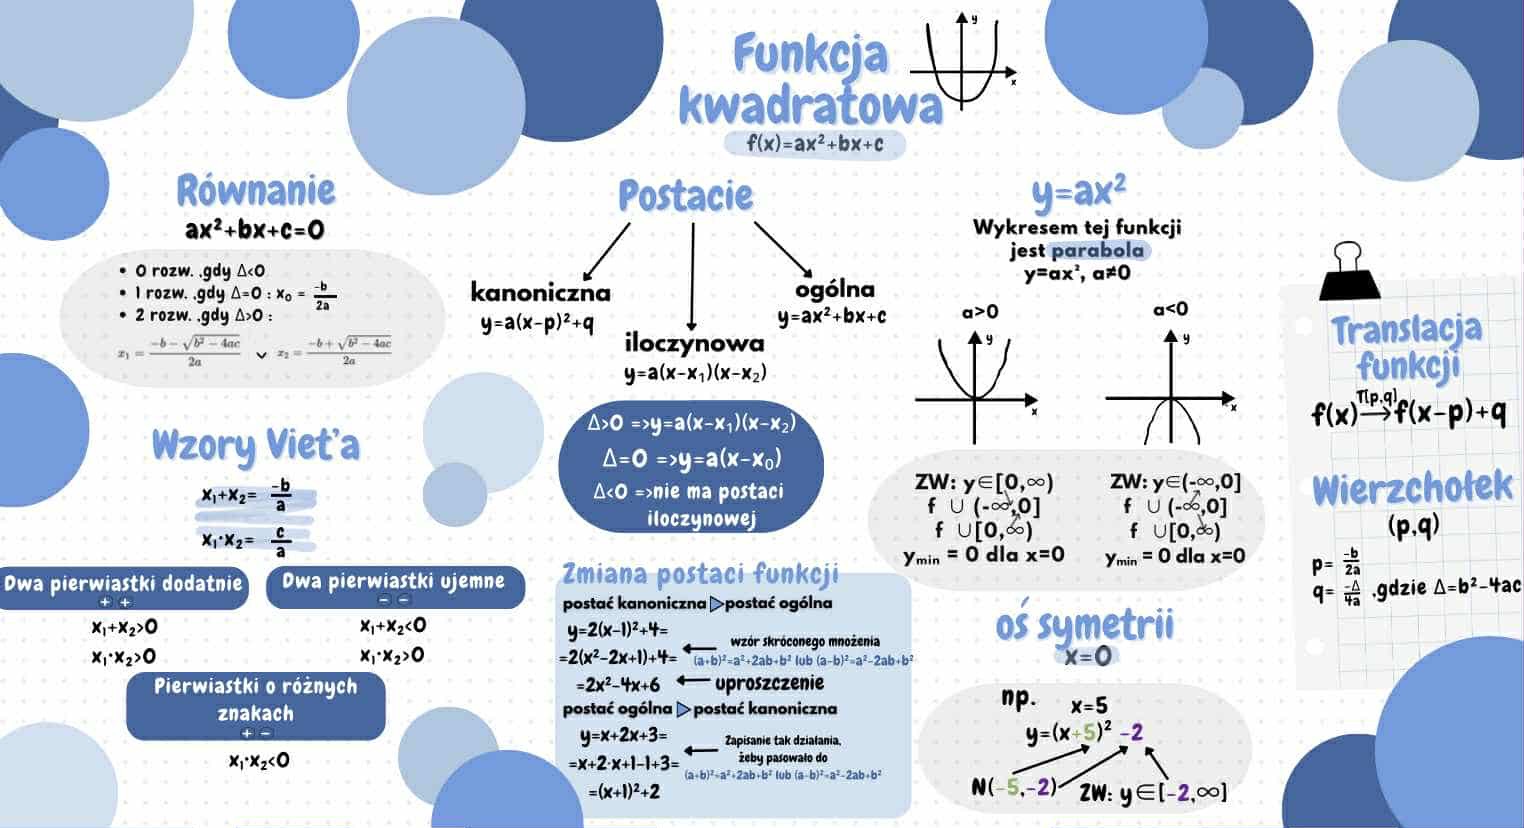 Funkcja
kwadratowa
f(x)=ax²+bx+c
y
x
Równanie
ax²+bx+c=0
• 0 rozw. ,gdy Δ<0
• 1 rozw. ,gdy Δ=0 : x₀ = -b/2a
• 2 rozw. ,gdy Δ>0 :
x₁ = (-b - √(b² - 4ac))/2a ∨ x₂ = (-b + √(b² - 4ac))/2a
Wzory Viet'a
x₁+x₂= -b/a
x₁·x₂= c/a
Dwa pierwiastki dodatnie
+ +
x₁+x₂>0
x₁·x₂>0
Dwa pierwiastki ujemne
- -
x₁+x₂<0
x₁·x₂>0
Pierwiastki o różnych
znakach
+ -
x₁·x₂<0
Postacie
kanoniczna
y=a(x-p)²+q
iloczynowa
y=a(x-x₁)(x-x₂)
ogólna
y=ax²+bx+c
Δ>0 =>y=a(x-x₁)(x-x₂)
Δ=0 =>y=a(x-x₀)
Δ<0 =>nie ma postaci
iloczynowej
Zmiana postaci funkcji
postać kanoniczna ▷ postać ogólna
y=2(x-1)²+4=
=2(x²-2x+1)+4=
wzór skróconego mnożenia
(a+b)²=a²+2ab+b² lub (a-b)²=a²-2ab+b²
=2x²-4x+6
uproszczenie
postać ogólna ▷ postać kanoniczna
y=x+2x+3=
=x+2·x+1-1+3=
=(x+1)²+2
Zapisanie tak działania,
żeby pasowało do
(a+b)²=a²+2ab+b² lub (a-b)²=a²-2ab+b²
y=ax²
Wykresem tej funkcji
jest parabola
y=ax², a≠0
a>0
y
x
a<0
y
x
ZW: y∈[0,∞)
f ∪ (-∞,0]
f ∪[0,∞)
ymin = 0 dla x=0
ZW: y∈(-∞,0]
f ∪ (-∞,0]
f ∪[0,∞)
ymin = 0 dla x=0
oś symetrii
x=0
np. x=5
y=(x+5)² -2
N(-5,-2)
ZW: y∈[-2,∞]
Translacja
funkcji
f(x) T[p,q]→ f(x-p)+q
Wierzchołek
(p,q)
p= -b/2a
q= -Δ/4a ,gdzie Δ=b²-4ac